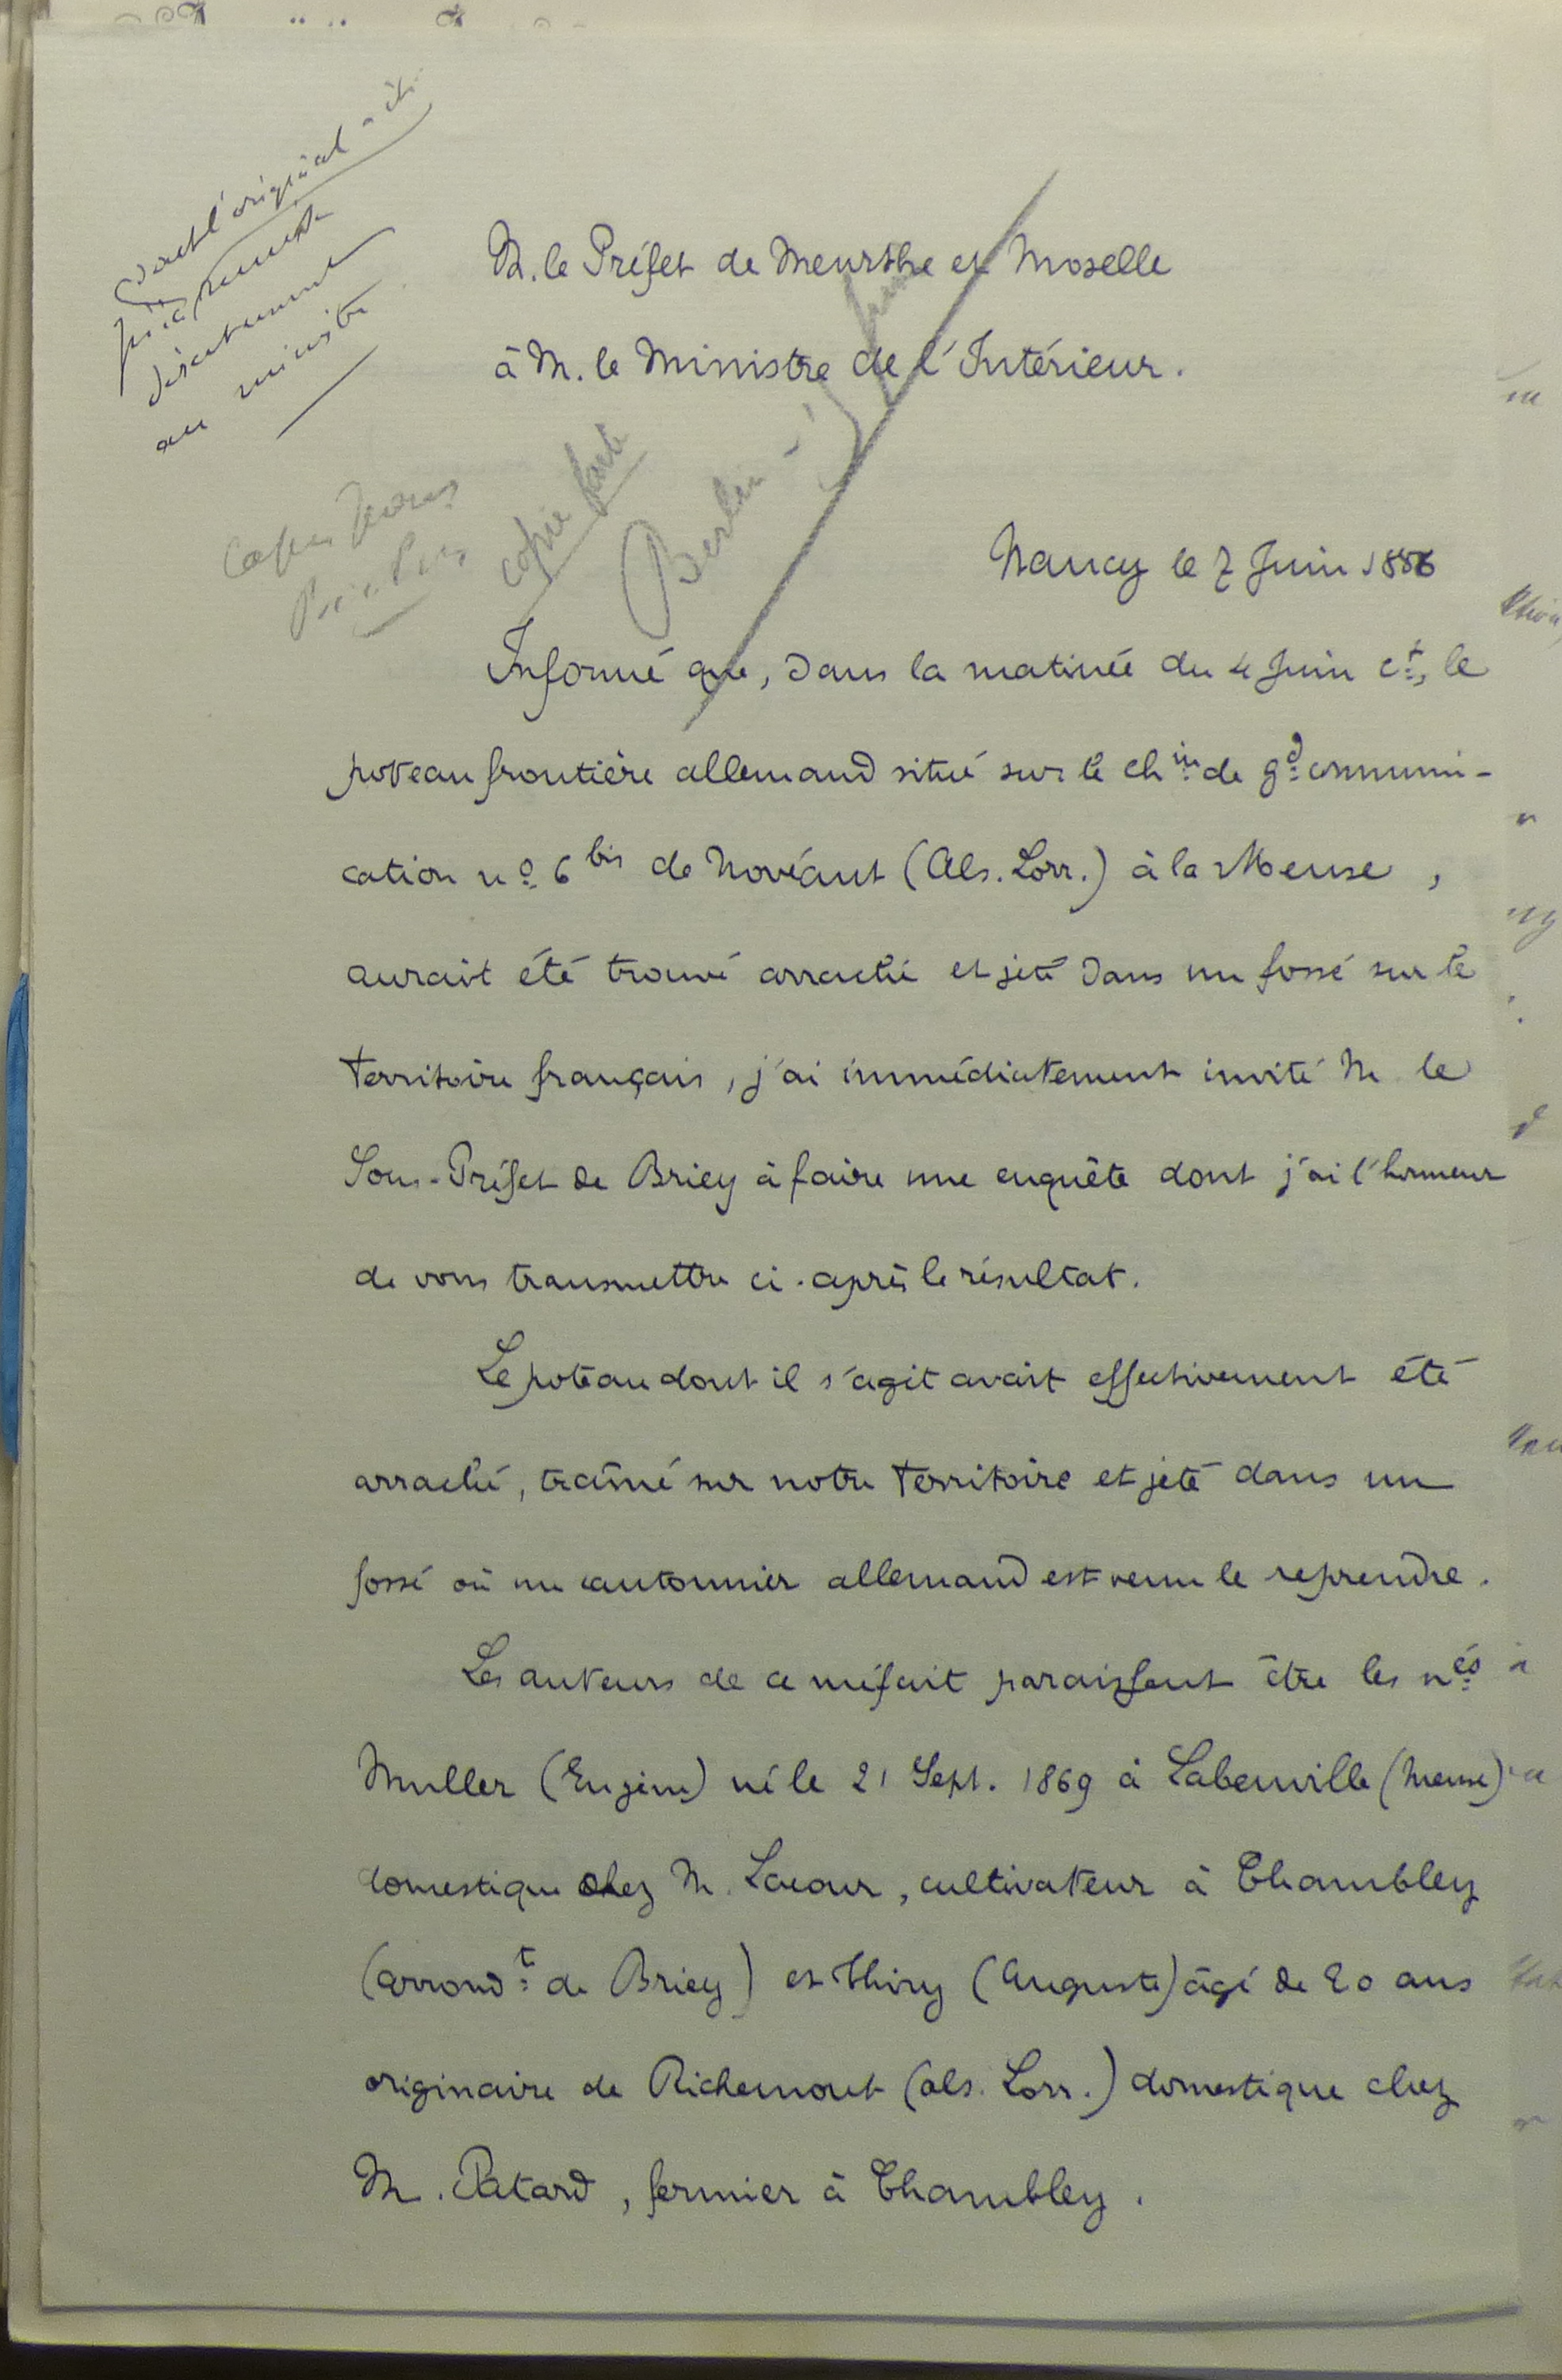 M. le Préfet de Meurthe et Moselle
à M. le Ministre de l'Intérieur.
dont l'original a été
directement
au ministre
copie faite
Berlin
Nancy le 7 Juin 1886
Informé que, dans la matinée du 4 Juin ct, le
poteau frontière allemand situé sur le chin de gd communi-
cation no 6 bis de Novéant (Als. Lorr.) à la Meuse,
aurait été trouvé arraché et jeté dans un fossé sur le
territoire français, j'ai immédiatement invité M le
Sous-Préfet de Briey à faire une enquête dont j'ai l'honneur
de vous transmettre ci-après le résultat.
Le poteau dont il s'agit avait effectivement été
arraché, traîné sur notre territoire et jeté dans un
fossé où un cantonnier allemand est venu le reprendre.
Les auteurs de ce méfait paraissent être les nés
Muller (Eugène) né le 21 Sept. 1869 à Labeuville (Meuse)
domestique chez M. Lacour, cultivateur à Chambley
(arrondt de Briey) et Thiry (Auguste) âgé de 20 ans
originaire de Richemont (als. Lorr.) domestique chez
M. Patard, fermier à Chambley.